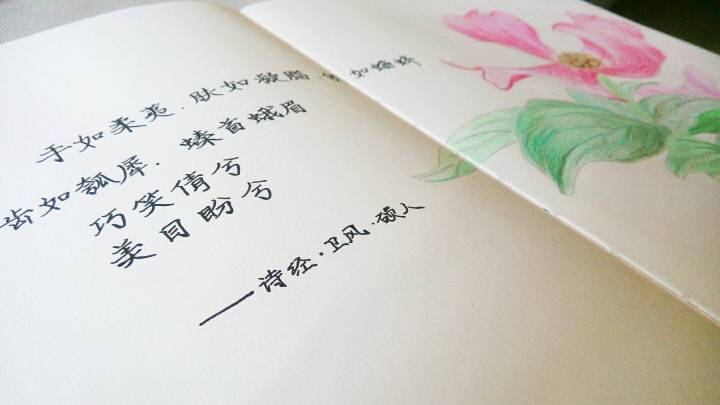 手如柔夷.肤如凝脂.如蝤蛴
齿如瓠犀.螓首蛾眉
巧笑倩兮
美目盼兮
——诗经·卫风·硕人